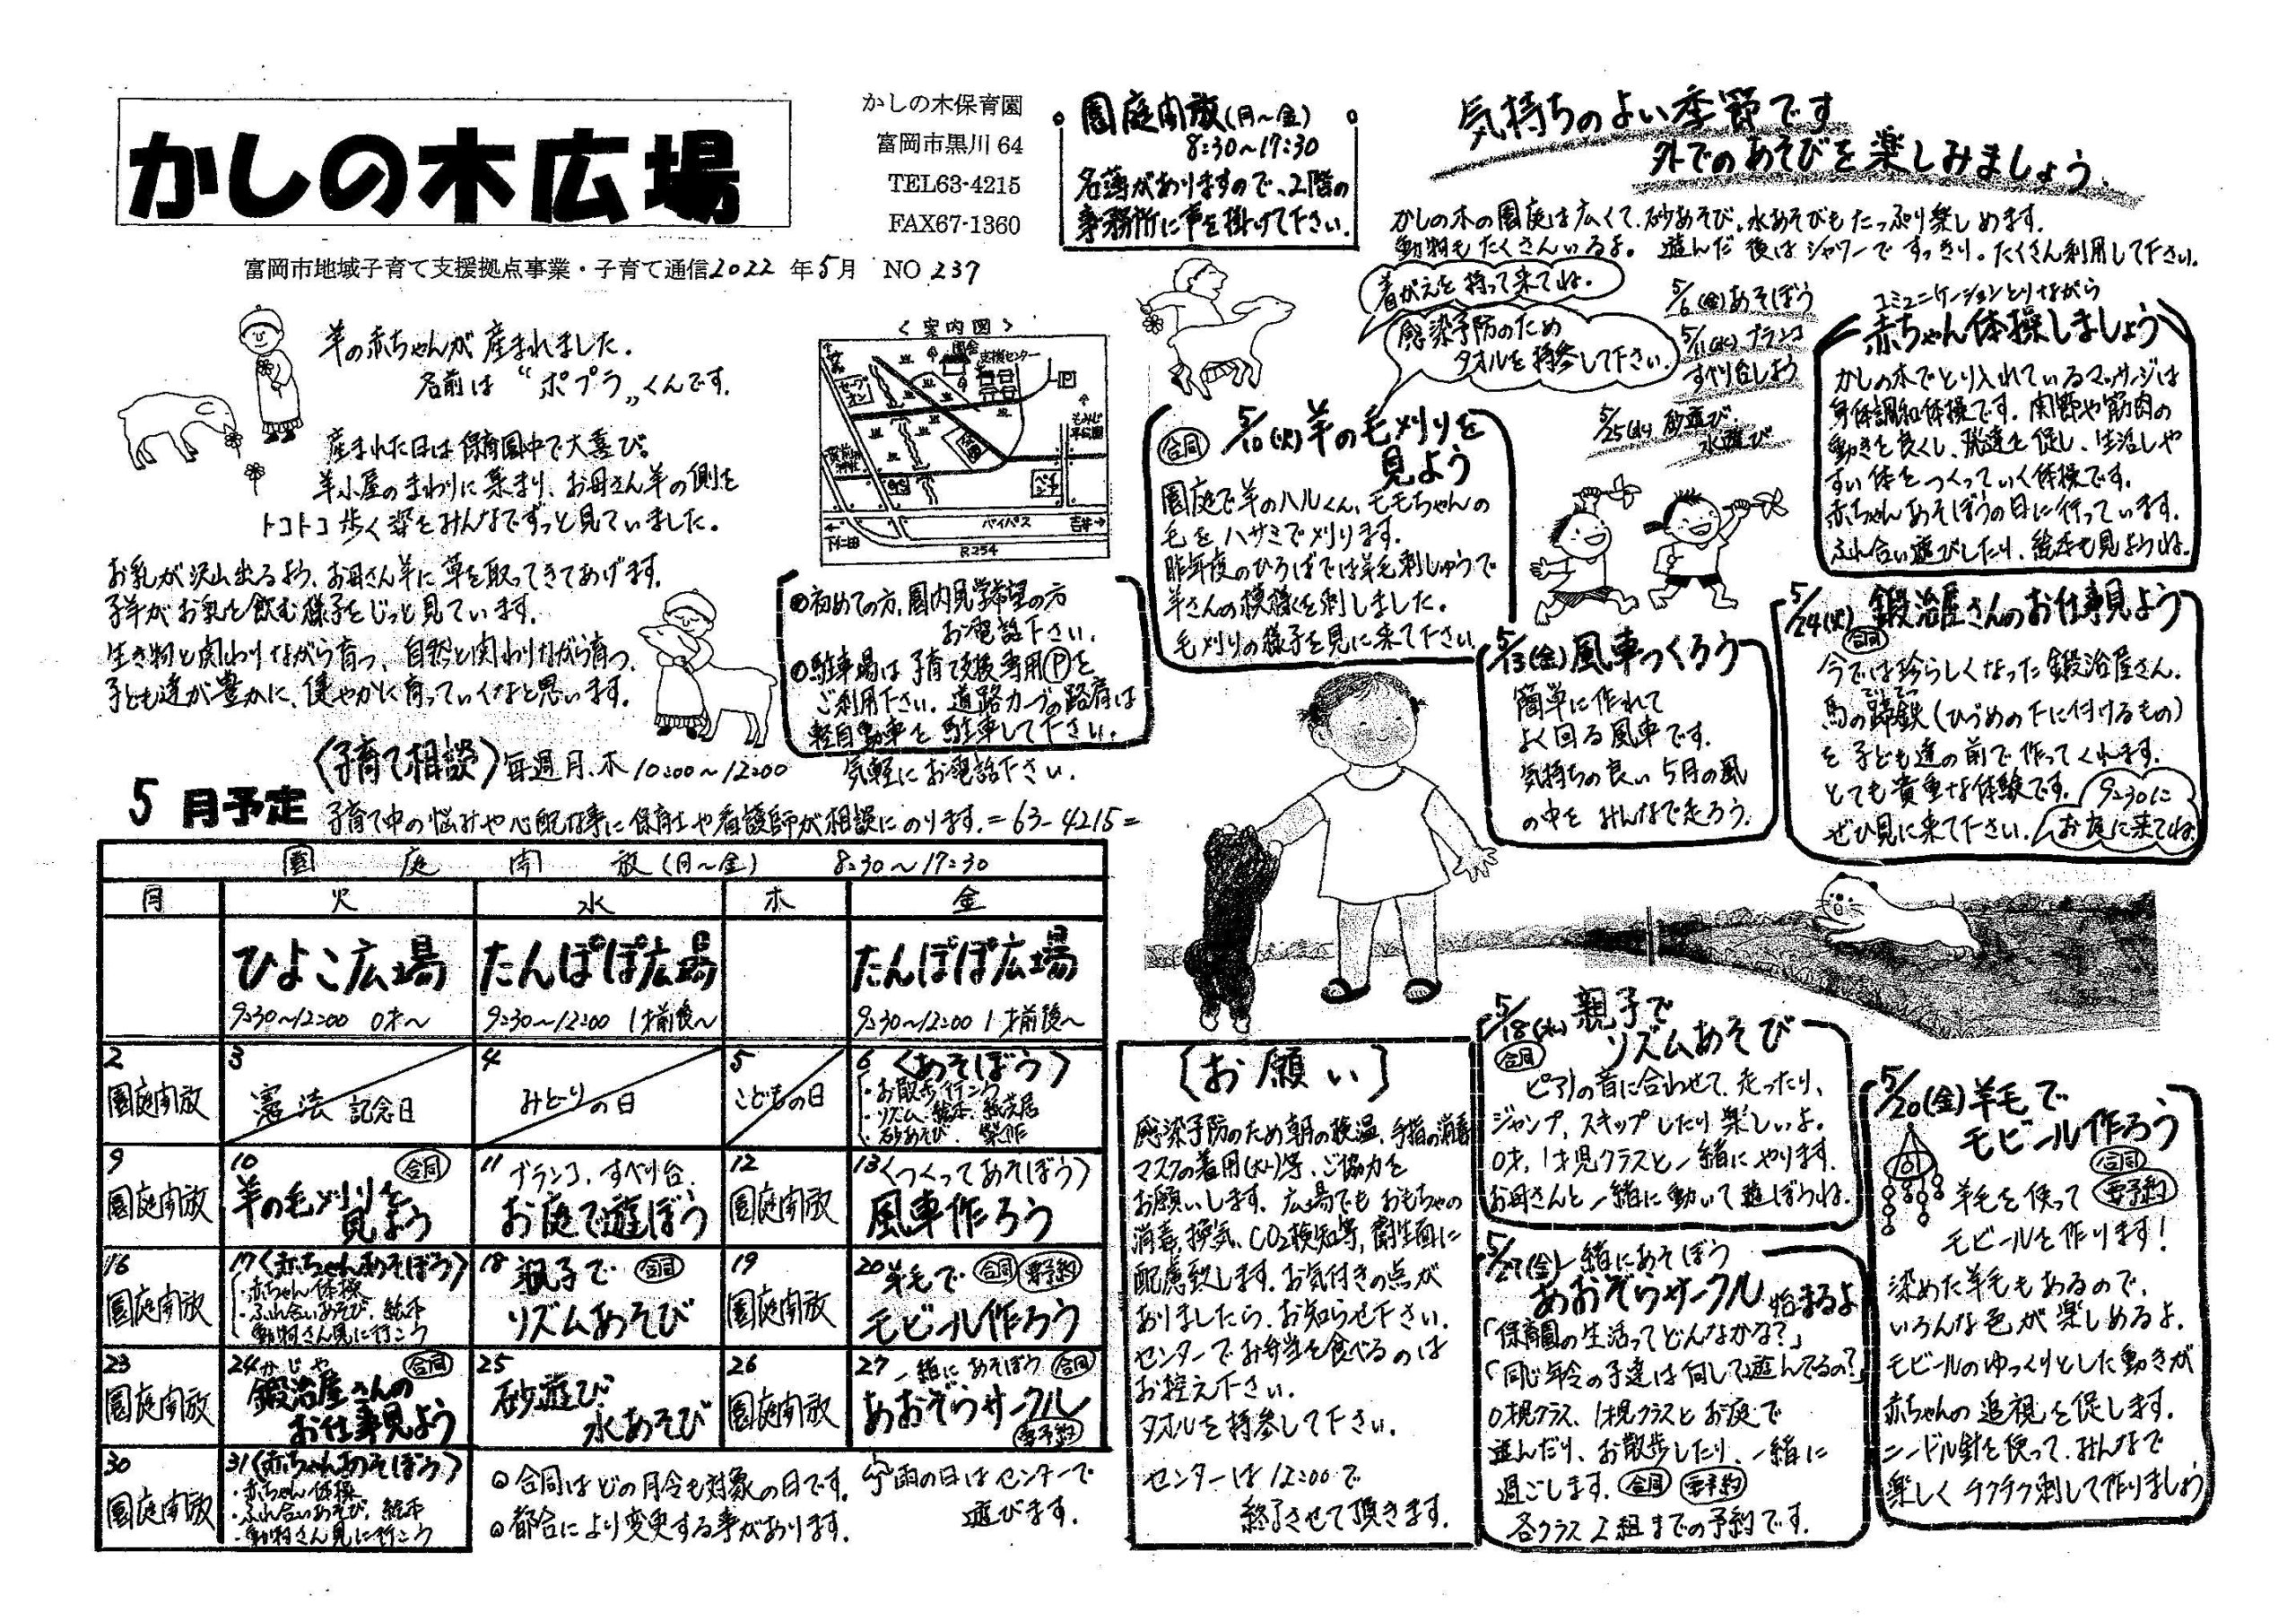 かしの木広場
かしの木保育園
富岡市黒川 64
TEL63-4215
FAX67-1360
富岡市地域子育て支援拠点事業・子育て通信2022 年5月 NO 237
園庭開放(月〜金)
8:30〜17:30
名薄がありますので、2階の
事務所に声を掛けて下さい。
気持ちのよい季節です
外でのあそびを楽しみましょう。
かしの木の園庭は広くて、砂あそび、水あそびもたっぷり楽しめます。
動物もたくさんいるよ。遊んだ後はシャワーですっきり。たくさん利用して下さい。
着がえを持って来てね。
感染予防のため
タオルを持参して下さい。
5/6(金)あそぼう
5/11(水)ブランコ
すべり台しよう
5/25(水)砂遊び
水遊び
羊の赤ちゃんが産まれました。
名前は“ポプラ„くんです。
産まれた日は保育園中で大喜び。
羊小屋のまわりに集まり、お母さん羊の側を
トコトコ歩く姿をみんなでずっと見ていました。
お乳が沢山出るよう、お母さん羊に草を取ってきてあげます。
子羊がお乳を飲む様子をじっと見ています。
生き物と関わりながら育つ、自然と関わりながら育つ、
子ども達が豊かに、健やかに育っていくなと思います。
<案内図>
園舎
支援センター
バイパス
吉井→
下仁田
R254
◎初めての方、園内見学希望の方
お電話下さい。
◎駐車場は子育て支援専用Ⓟを
ご利用下さい。道路カーブの路肩は
軽自動車を駐車して下さい。
コミュニケーションとりながら
赤ちゃん体操しましょう
かしの木でとり入れているマッサージは
身体調和体操です。関節や筋肉の
動きを良くし、発達を促し、生活しや
すい体をつくっていく体操です。
赤ちゃんあそぼうの日に行っています。
ふれ合い遊びしたり、絵本も見ようね。
合同 5/10(火)羊の毛刈りを
見よう
園庭で羊のハルくん、モモちゃんの
毛をハサミで刈ります。
昨年度のひろばでは羊毛刺しゅうで
羊さんの模様を刺しました。
毛刈りの様子を見に来て下さい。
5/13(金)風車つくろう
簡単に作れて
よく回る風車です。
気持ちの良い5月の風
の中をみんなで走ろう。
5/24(火)鍛冶屋さんのお仕事見よう
合同
今では珍らしくなった鍛冶屋さん。
馬の蹄鉄(ひづめの下に付けるもの)
ていてつ
を子ども達の前で作ってくれます。
とても貴重な体験です。
ぜひ見に来て下さい。
9:30に
お庭に来てね
〈子育て相談〉毎週月、木 10:00〜12:00 気軽にお電話下さい。
子育て中の悩みや心配な事に保育士や看護師が相談にのります。=63-4215=
5月予定
園庭開放(月〜金) 8:30〜17:30
月 火 水 木 金
ひよこ広場 たんぽぽ広場 たんぽぽ広場
9:30〜12:00 0才〜 9:30〜12:00 1才前後〜 9:30〜12:00 1才前後〜
2 園庭開放
3 憲法記念日
4 みどりの日
5 こどもの日
6 〈あそぼう〉
・お散歩行こう
・リズム、絵本、紙芝居
・砂あそび、製作
9 園庭開放
10 合同
羊の毛刈りを
見よう
11 ブランコ、すべり台
お庭で遊ぼう
12 園庭開放
13〈つくってあそぼう〉
風車作ろう
16 園庭開放
17〈赤ちゃんあそぼう〉
・赤ちゃん体操
・ふれ合いあそび、絵本
・動物さん見に行こう
18 親子で 合同
リズムあそび
19 園庭開放
20 羊毛で 合同 要予約
モビール作ろう
23 園庭開放
24 かじや 合同
鍛冶屋さんの
お仕事見よう
25 砂遊び
水あそび
26 園庭開放
27 一緒にあそぼう 合同
あおぞらサークル
要予約
30 園庭開放
31〈赤ちゃんあそぼう〉
・赤ちゃん体操
・ふれ合いあそび、絵本
・動物さん見に行こう
◎合同はどの月令も対象の日です。
◎都合により変更する事があります。
雨の日はセンターで
遊びます。
〔お願い〕
感染予防のため朝の検温、手指の消毒
マスクの着用(大人)等、ご協力を
お願いします。広場でもおもちゃの
消毒、換気、CO2検知等、衛生面に
配慮致します。お気付きの点が
ありましたら、お知らせ下さい。
センターでお弁当を食べるのは
お控え下さい。
タオルを持参して下さい。
センターは12:00で
終了させて頂きます。
5/18(水)親子で
合同 リズムあそび
ピアノの音に合わせて、走ったり、
ジャンプ、スキップしたり楽しいよ。
0才、1才児クラスと一緒にやります。
お母さんと一緒に動いて遊ぼうね。
5/27(金)一緒にあそぼう
あおぞらサークル始まるよ
「保育園の生活ってどんなかな?」
「同じ年令の子達は何して遊んでるの?」
0才児クラス、1才児クラスとお庭で
遊んだり、お散歩したり、一緒に
過ごします。合同 要予約
各クラス2組までの予約です。
5/20(金)羊毛で
モビール作ろう
合同
要予約
羊毛を使って
モビールを作ります!
染めた羊毛もあるので、
いろんな色が楽しめるよ。
モビールのゆっくりとした動きが
赤ちゃんの追視を促します。
ニードル針を使って、みんなで
楽しくチクチク刺して作りましょう